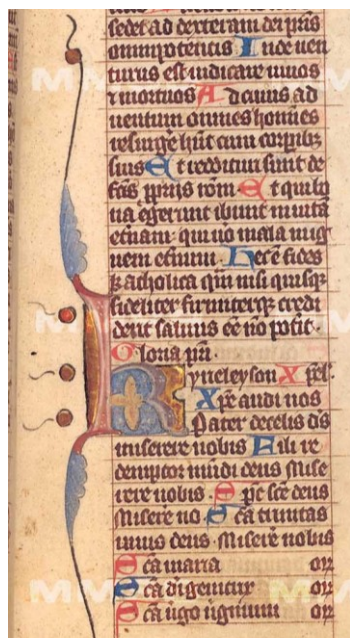 sedet ad dexteram dei pris
omnipotentis Inde uen
turus est iudicare uiuos
⁊ mortuos Ad cuius ad
uentum omnes homines
resurge hnt cum corpibz
suis Et reddituri sunt de
fcis ppriis rom Et qui bo
na egerunt ibunt in uita
etnam qui uo mala in ig
nem etnum Hec e fides
katholica qm nisi quisq
fideliter firmiterqz credi
derit saluus ee no potit
Gloria pri
Kyrieleyson Xpel
Xpe audi nos
Pater de celis ds
miserere nobis Fili re
demptor mundi deus mise
rere nobis Spc sce deus
Miserere no Sca trinitas
unus deus Miserere nobis
Sca maria or
Sca di genitrix or
Sca uigo uiginum or